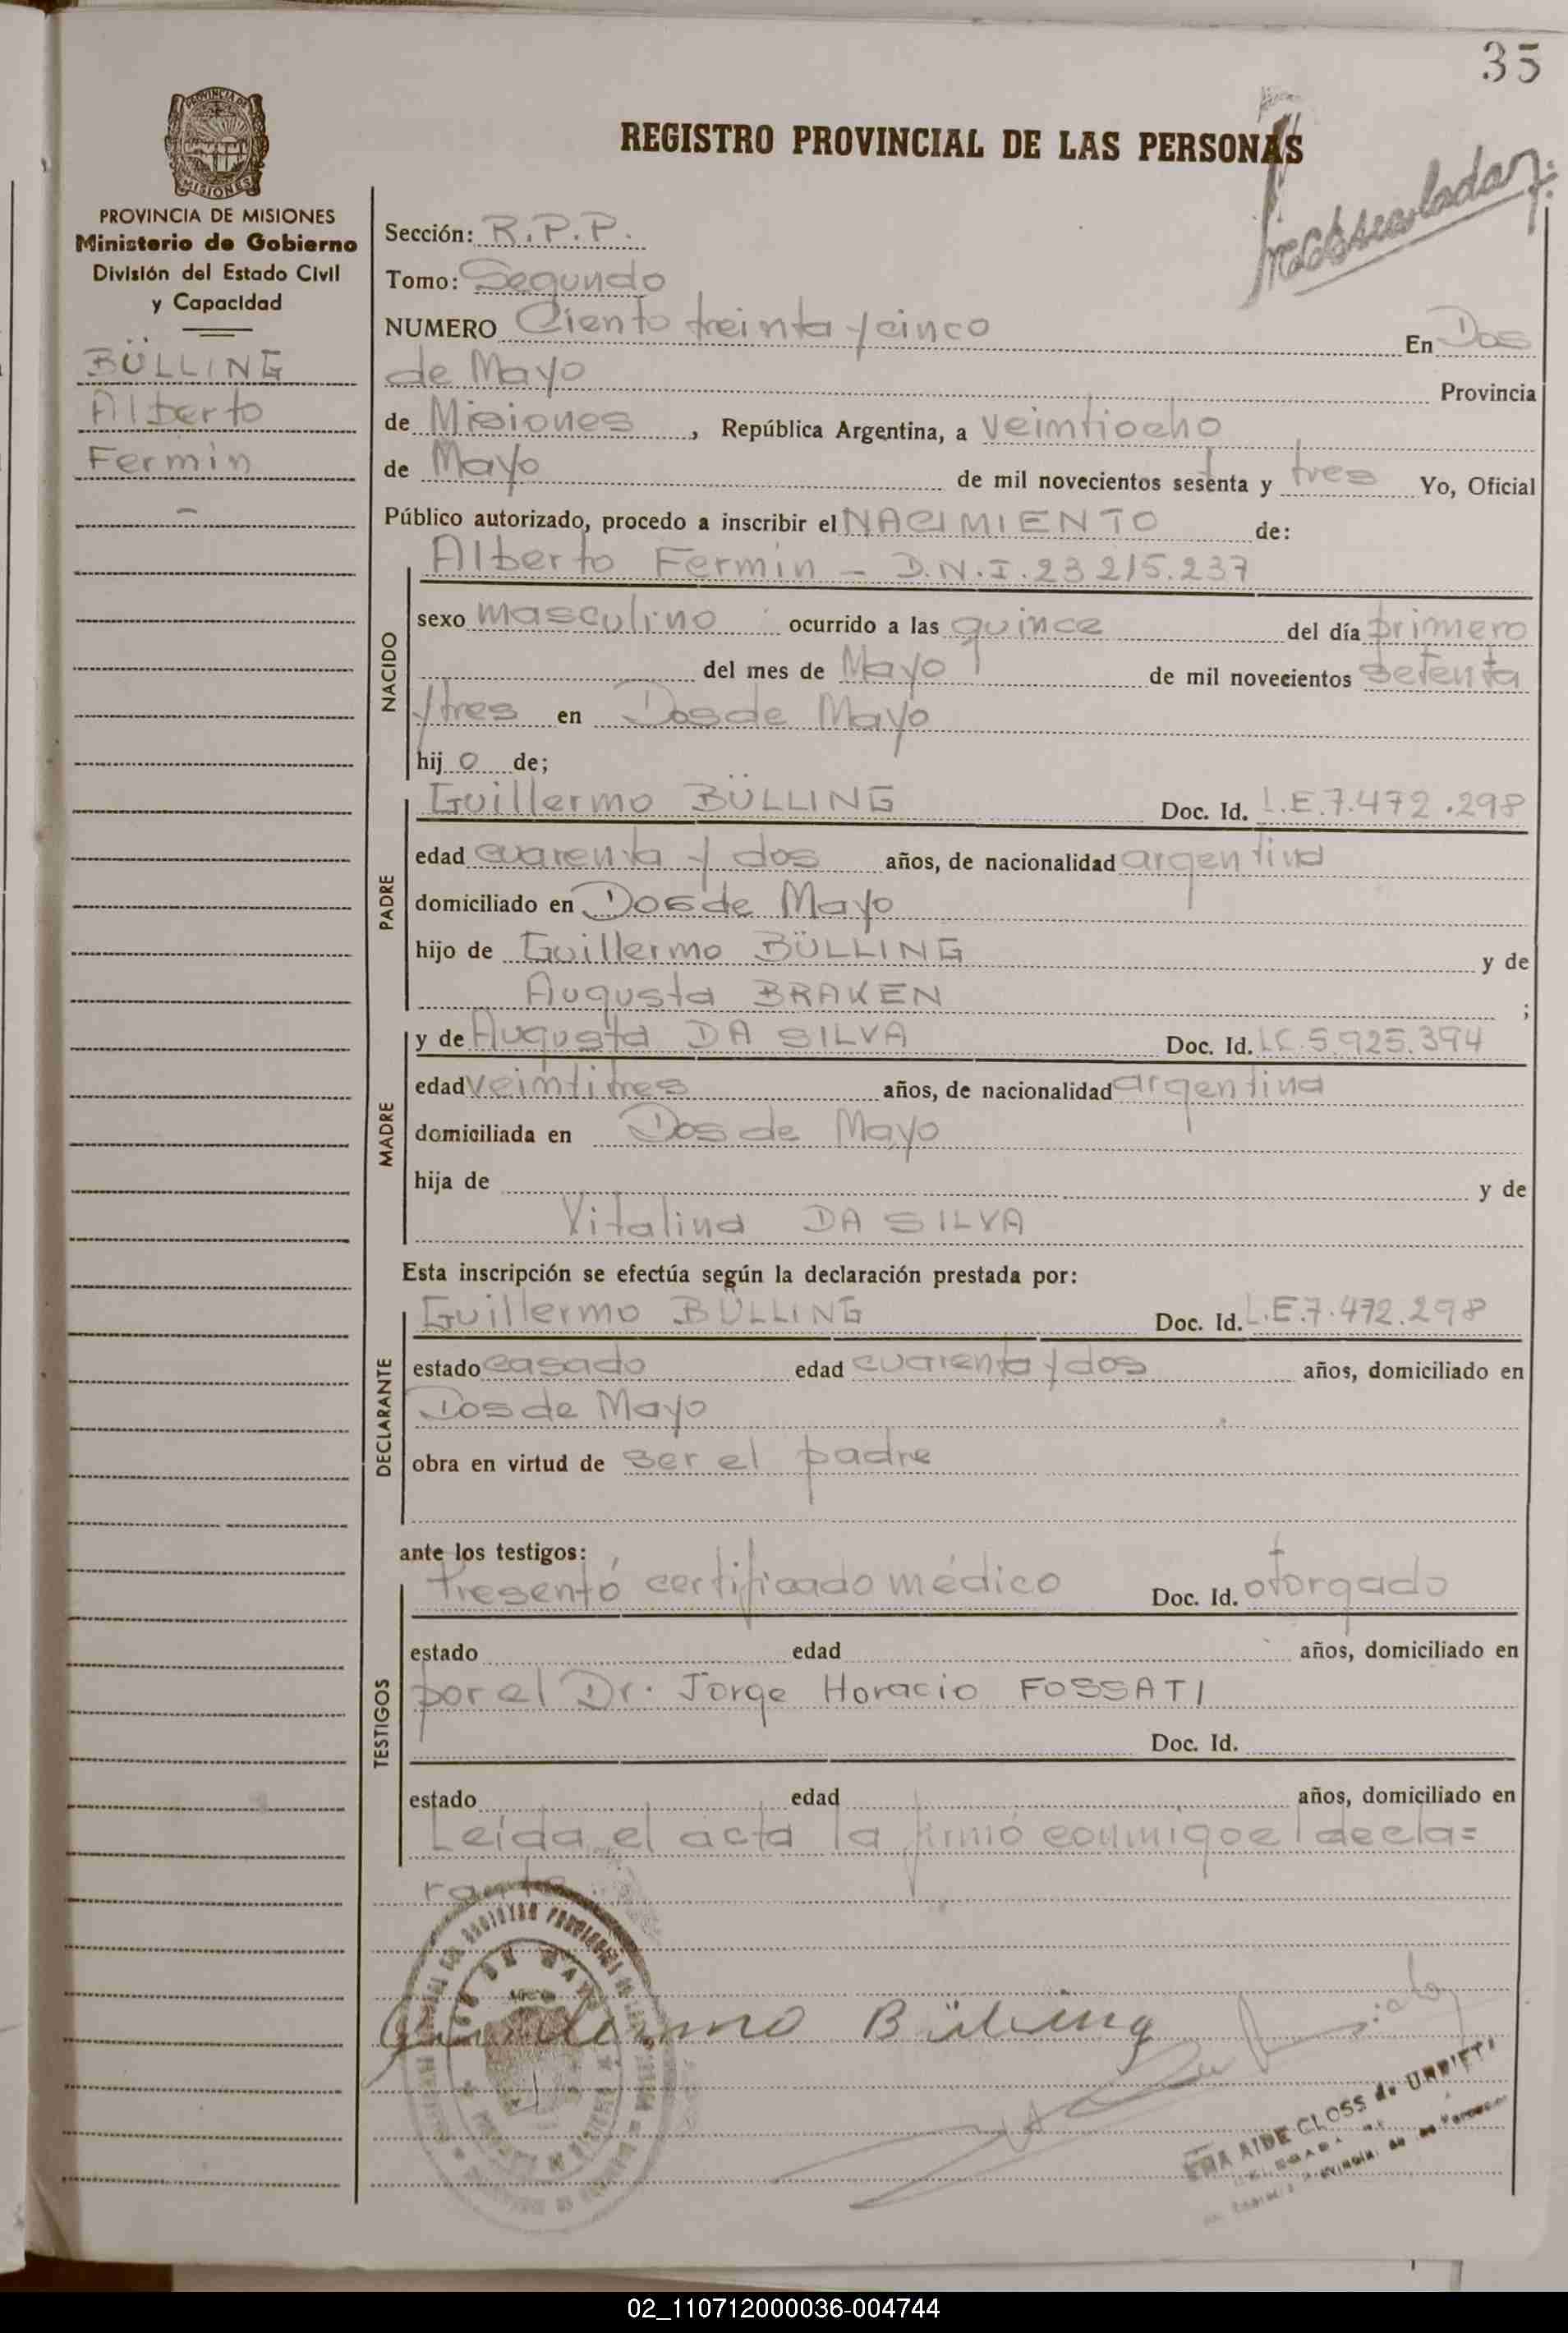 35
REGISTRO PROVINCIAL DE LAS PERSONAS
PROVINCIA DE
MISIONES
PROVINCIA DE MISIONES
Ministerio de Gobierno
División del Estado Civil
y Capacidad
BÜLLING
Alberto
Fermin
Sección: R.P.P.
Tomo: Segundo
NUMERO Ciento treinta y cinco En Dos
de Mayo Provincia
de Misiones, República Argentina, a veimtiocho
de Mayo de mil novecientos sesenta y tres Yo, Oficial
Público autorizado, procedo a inscribir el NACIMIENTO de:
Alberto Fermin - D.N.I. 23 215.237
NACIDO
sexo masculino ocurrido a las quince del día primero
del mes de Mayo de mil novecientos setenta
y tres en Dos de Mayo
hij o de;
PADRE
Guillermo BÜLLING Doc. Id. L.E.7.472.298
edad cuarenta y dos años, de nacionalidad argentina
domiciliado en Dos de Mayo
hijo de Guillermo BÜLLING y de
Augusta BRAKEN ;
MADRE
y de Augusta DA SILVA Doc. Id. LC.5.925.394
edad veimtitres años, de nacionalidad argentina
domiciliada en Dos de Mayo
hija de y de
Vitalina DA SILVA
Esta inscripción se efectúa según la declaración prestada por:
DECLARANTE
Guillermo BÜLLING Doc. Id. L.E.7.472.298
estado casado edad cuarenta y dos años, domiciliado en
Dos de Mayo
obra en virtud de ser el padre
ante los testigos:
TESTIGOS
Presentó certificado médico Doc. Id. otorgado
estado edad años, domiciliado en
por el Dr. Jorge Horacio FOSSATI
Doc. Id.
estado edad años, domiciliado en
Leída el acta la firmó conmigo el decla=
rante
Guillermo Bülling
AIDE CLOSS de URRIETA
02_110712000036-004744